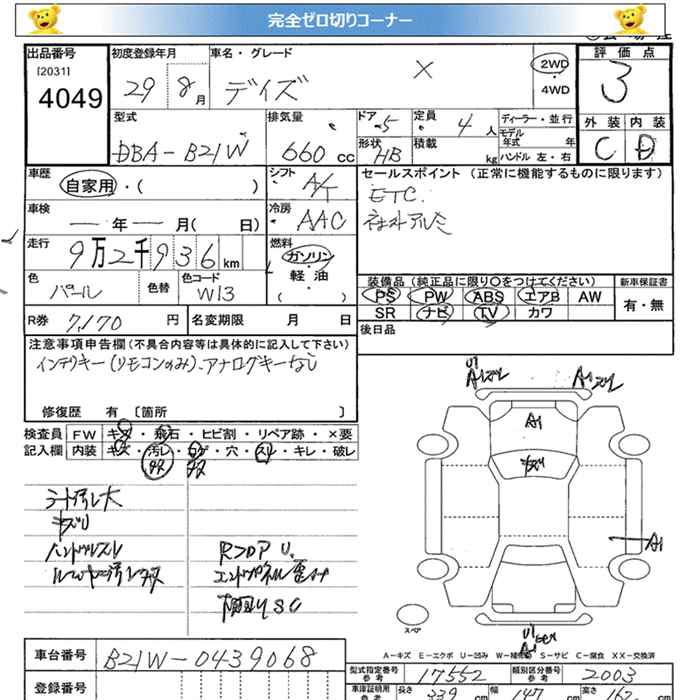 完全ゼロ切りコーナー
出品番号 初度登録年月 車名・グレード 評価点
[2031] 2WD
4049 29 8月 デイズ X ・ 3
4WD
型式 排気量 ドア 5 定員 4人 ディーラー・並行 外装 内装
モデル年式 年
DBA-B21W 660cc 形状 HB 積載 kg ハンドル 左・右 C D
車歴 シフト セールスポイント (正常に機能するものに限ります)
自家用・( ) A/T ETC.
車検 冷房 社外アルミ
ー年ー月( 日) AAC
走行 燃料
9万2千936km ガソリン
色 色替 色コード 軽・油 装備品(純正品に限り〇をつけてください) 新車保証書
パール W13 ( ) PS PW ABS エアB AW 有・無
R券 7,170円 名変期限 月 日 SR ナビ TV カワ
注意事項申告欄(不具合内容等は具体的に記入して下さい) 後日品
インテリキー(リモコンのみ).アナログキーなし
修復歴 有 〔箇所 〕
検査員 FW キズ・飛石・ヒビ割・リペア跡・×要
記入欄 内装 キズ・汚レ・コゲ・穴・スレ・キレ・破レ
シート汚レ大
キズU
ハンドルスレ
RフロアU.
エンドパネル歪
A1
A1
スペア
A-キズ E-エクボ U-凹み W-補修跡 S-サビ C-腐食 XX-交換済
車台番号 B21W-0439068
型式指定番号 参考 17552 類別区分番号 参考 2003
登録番号 車庫証明用 参考 長さ 339 cm 幅 147 cm 高さ 162 cm